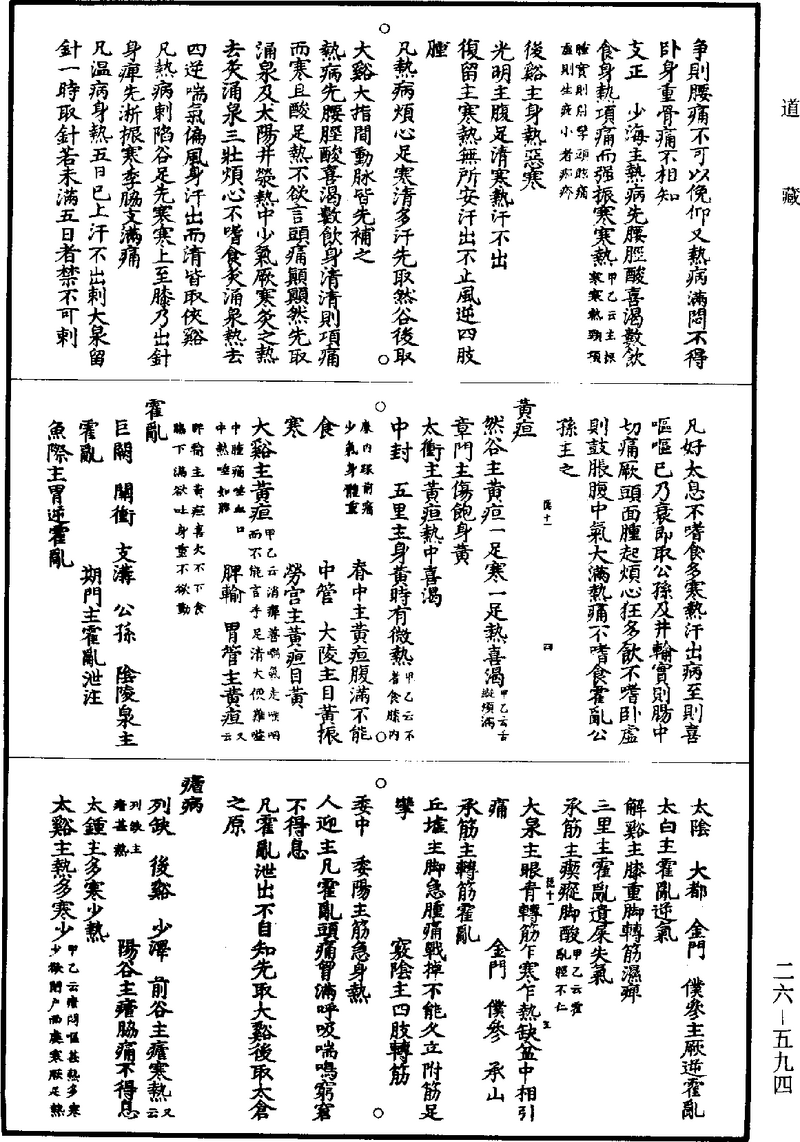 道藏
爭則腰痛不可以俛仰又熱病滿悶不得
卧身重骨痛不相知
支正　少海主熱病先腰脛酸喜渴數飲
食身熱項痛而强振寒寒熱甲乙云主振寒寒熱頸項
腫實則肘攣頭眩痛
虛則生疣小者痂疥
後谿主身熱惡寒
光明主腹足清寒熱汗不出
復留主寒熱無所安汗出不止風逆四肢
腫
凡熱病煩心足寒清多汗先取然谷後取
大谿大指間動脉皆先補之
熱病先腰脛酸喜渴數飲身清清則項痛
而寒且酸足熱不欲言頭痛顛顛然先取
涌泉及太陽井滎熱中少氣厥寒灸之熱
去灸涌泉三壯煩心不嗜食灸涌泉熱去
四逆喘氣偏風身汗出而清皆取俠谿
凡熱病刺陷谷足先寒寒上至膝乃出針
身痺先淅振寒季脇支滿痛
凡温病身熱五日已上汗不出刺大泉留
針一時取針若未滿五日者禁不可刺
凡好太息不嗜食多寒熱汗出病至則喜
嘔嘔已乃衰即取公孫及井輸實則腸中
切痛厥頭面腫起煩心狂多飲不嗜卧虛
則鼓脹腹中氣大滿熱痛不嗜食霍亂公
孫主之
黃疸
然谷主黃疸一足寒一足熱喜渴甲乙云舌縱煩滿
章門主傷飽身黃
太衝主黃疸熱中喜渴
中封　五里主身黃時有微熱甲乙云不嗜食膝內
廉內踝前痛
少氣身體重
脊中主黃疸腹滿不能
食
中管　大陵主目黃振
寒
勞宮主黃疸目黃
大谿主黃疸甲乙云消癉善噫氣走喉咽而不能言手足清大便難嗌
中腫痛唾血口
中熱唾如膠
脾輸　胃管主黃疸又云
肝輸主黃疸喜欠不下食
脇下滿欲吐身重不欲動
霍亂
巨闕　關衝　支溝　公孫　陰陵泉主
霍亂
期門主霍亂泄注
魚際主胃逆霍亂
太陰　大都　金門　僕參主厥逆霍亂
太白主霍亂逆氣
解谿主膝重脚轉筋濕痺
三里主霍亂遺屎失氣
承筋主瘈瘲脚酸甲乙云霍亂脛不仁
大泉主眼青轉筋乍寒乍熱缺盆中相引
痛
金門　僕參　承山
承筋主轉筋霍亂
丘墟主脚急腫痛戰掉不能久立附筋足
攣
竅陰主四肢轉筋
委中　委陽主筋急身熱
人迎主凡霍亂頭痛胷滿呼吸喘鳴窮窘
不得息
凡霍亂泄出不自知先取大谿後取太倉
之原
瘧病
列缺　後谿　少澤　前谷主瘧寒熱又云
列缺主
瘧甚熱
陽谷主瘧脇痛不得息
太鍾主多寒少熱
太谿主熱多寒少甲乙云瘧悶嘔甚熱多寒少欲閉户而處寒厥足熱
二六—五九四